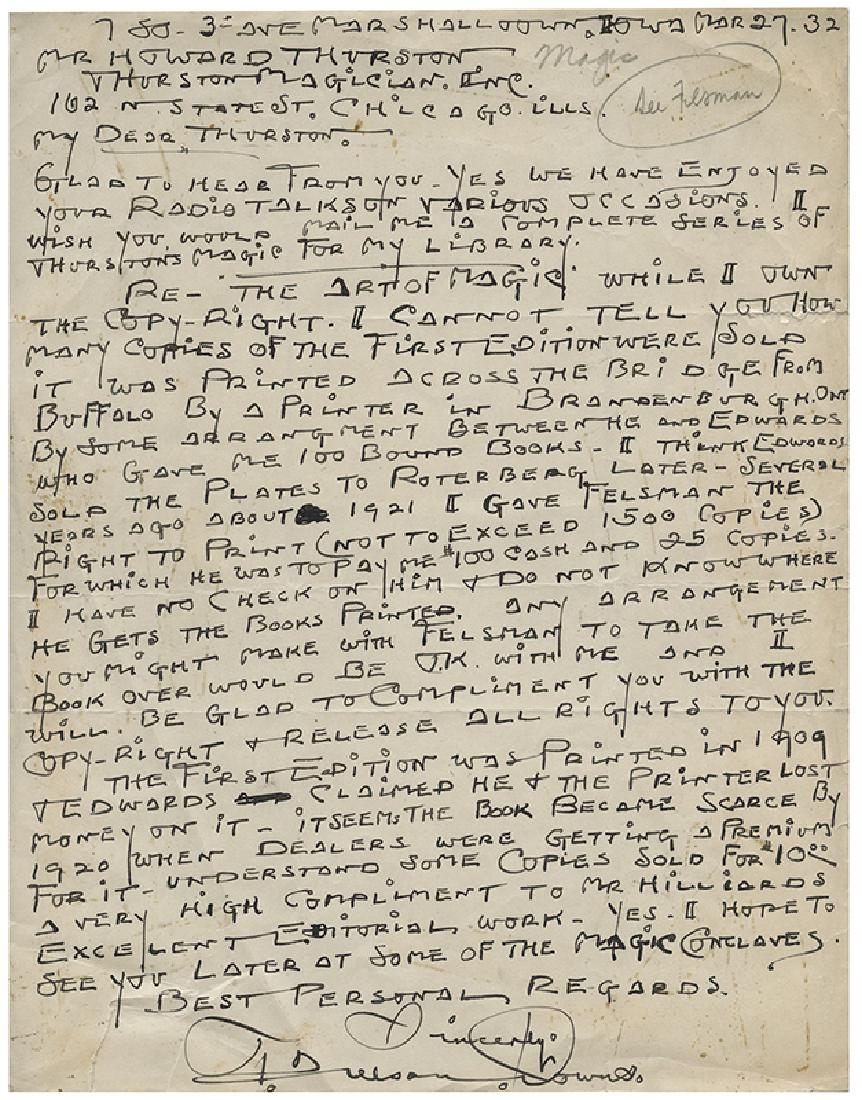 7 SO. 3= AVE MARSHALLTOWN. IOWA MAR 27. 32
MR HOWARD THURSTON
Magic
THURSTON MAGICIAN. INC.
See Felsman
102 N. STATE ST. CHICAGO. ILLS.
MY DEAR, THURSTON.
GLAD TO HEAR FROM YOU - YES WE HAVE ENJOYED
YOUR RADIO TALKS ON VARIOUS OCCASIONS. I
WISH YOU WOULD MAIL ME A COMPLETE SERIES OF
THURSTON'S MAGIC FOR MY LIBRARY.
RE - THE ART OF MAGIC. WHILE I OWN
THE COPY-RIGHT. I CANNOT TELL YOU HOW
MANY COPIES OF THE FIRST EDITION WERE SOLD
IT WAS PRINTED ACROSS THE BRIDGE FROM
BUFFALO BY A PRINTER IN BRANDENBURGH. ONT
BY SOME ARRANGMENT BETWEEN HE AND EDWARDS
WHO GAVE ME 100 BOUND BOOKS - I THINK EDWARDS
SOLD THE PLATES TO ROTERBERG LATER - SEVERAL
YEARS AGO ABOUT 1921 I GAVE FELSMAN THE
RIGHT TO PRINT (NOT TO EXCEED 1500 COPIES)
FOR WHICH HE WAS TO PAY ME $100 CASH AND 25 COPIES.
I HAVE NO CHECK ON HIM & DO NOT KNOW WHERE
HE GETS THE BOOKS PRINTED. ANY ARRANGEMENT
YOU MIGHT MAKE WITH FELSMAN TO TAKE THE
BOOK OVER WOULD BE O.K. WITH ME AND I
WILL. BE GLAD TO COMPLIMENT YOU WITH THE
COPY-RIGHT & RELEASE ALL RIGHTS TO YOU.
THE FIRST EDITION WAS PRINTED IN 1909
& EDWARDS CLAIMED HE & THE PRINTER LOST
MONEY ON IT - IT SEEMS THE BOOK BECAME SCARCE BY
1920 WHEN DEALERS WERE GETTING A PREMIUM
FOR IT - UNDERSTAND SOME COPIES SOLD FOR $10.00
A VERY HIGH COMPLIMENT TO MR HILLIARDS
EXCELLENT EDITORIAL WORK - YES. I HOPE TO
SEE YOU LATER AT SOME OF THE MAGIC CONCLAVES.
BEST PERSONAL REGARDS.
Sincerely:
T. Nelson Downs.